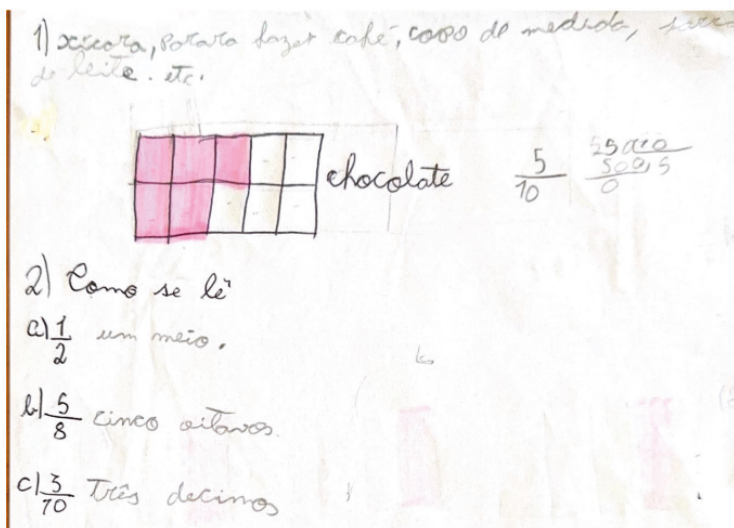 1) xícara, para fazer café, copo de medida,
de leite. etc.
chocolate
5/10
2) Como se lê
a) 1/2 um meio.
b) 5/8 cinco oitavos.
c) 3/10 Três decimos